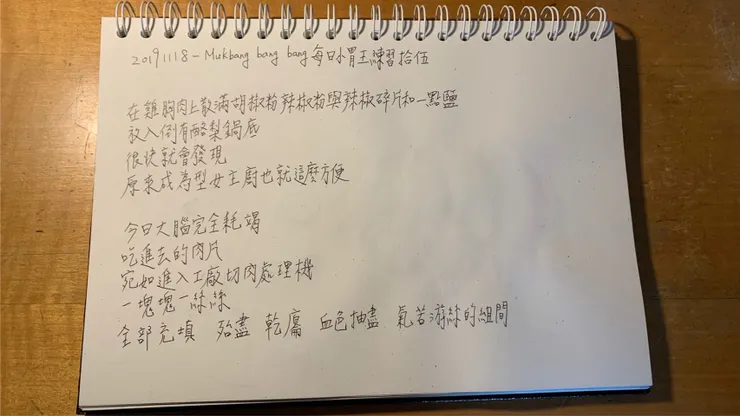 20191118 - Mukbang bang bang 每日小胃王練習拾伍
在雞胸肉上散滿胡椒粉辣椒粉與辣椒碎片和一點鹽
放入倒有酪梨鍋底
很快就會發現
原來成為型女主廚也就這麼方便
今日大腦完全耗竭
吃進去的肉片
宛如進入工廠切肉處理機
一塊塊一絲絲
全部充填 殆盡 乾癟 血色抽盡 氣若游絲的組間